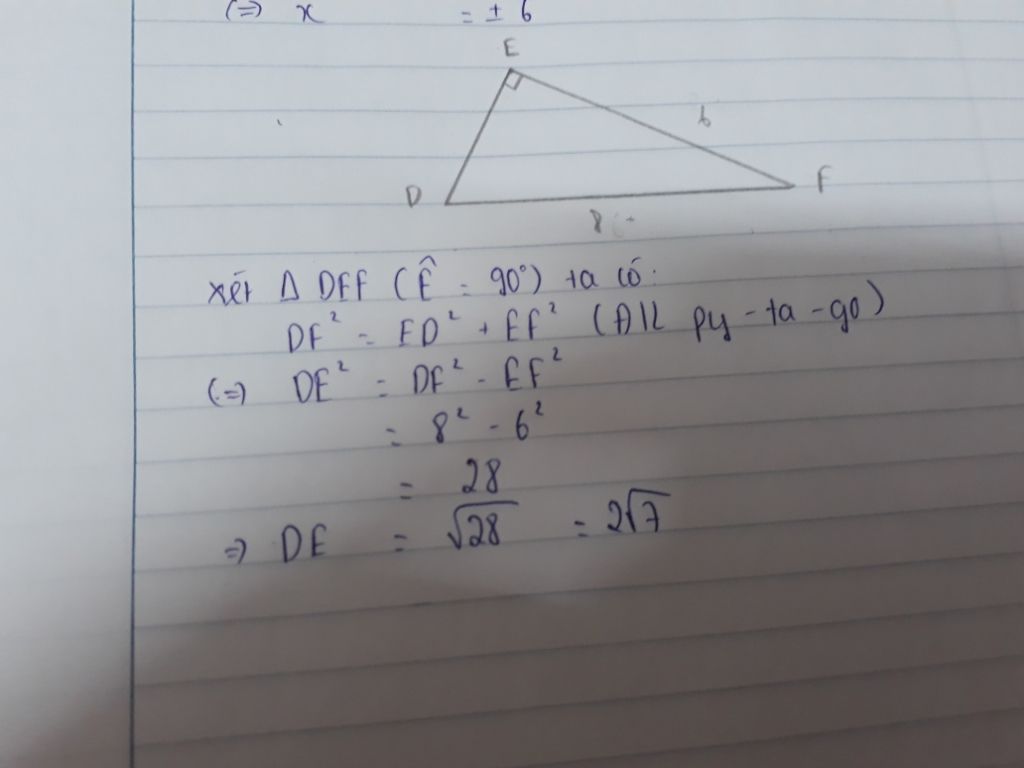 (=) x = ± 6
E
6
D
F
8
xét Δ DEF (Ê = 90°) ta có:
DF² = ED² + EF² (ĐL py-ta-go)
(=) DE² = DF² - EF²
= 8² - 6²
= 28
=) DE = √28 = 2√7